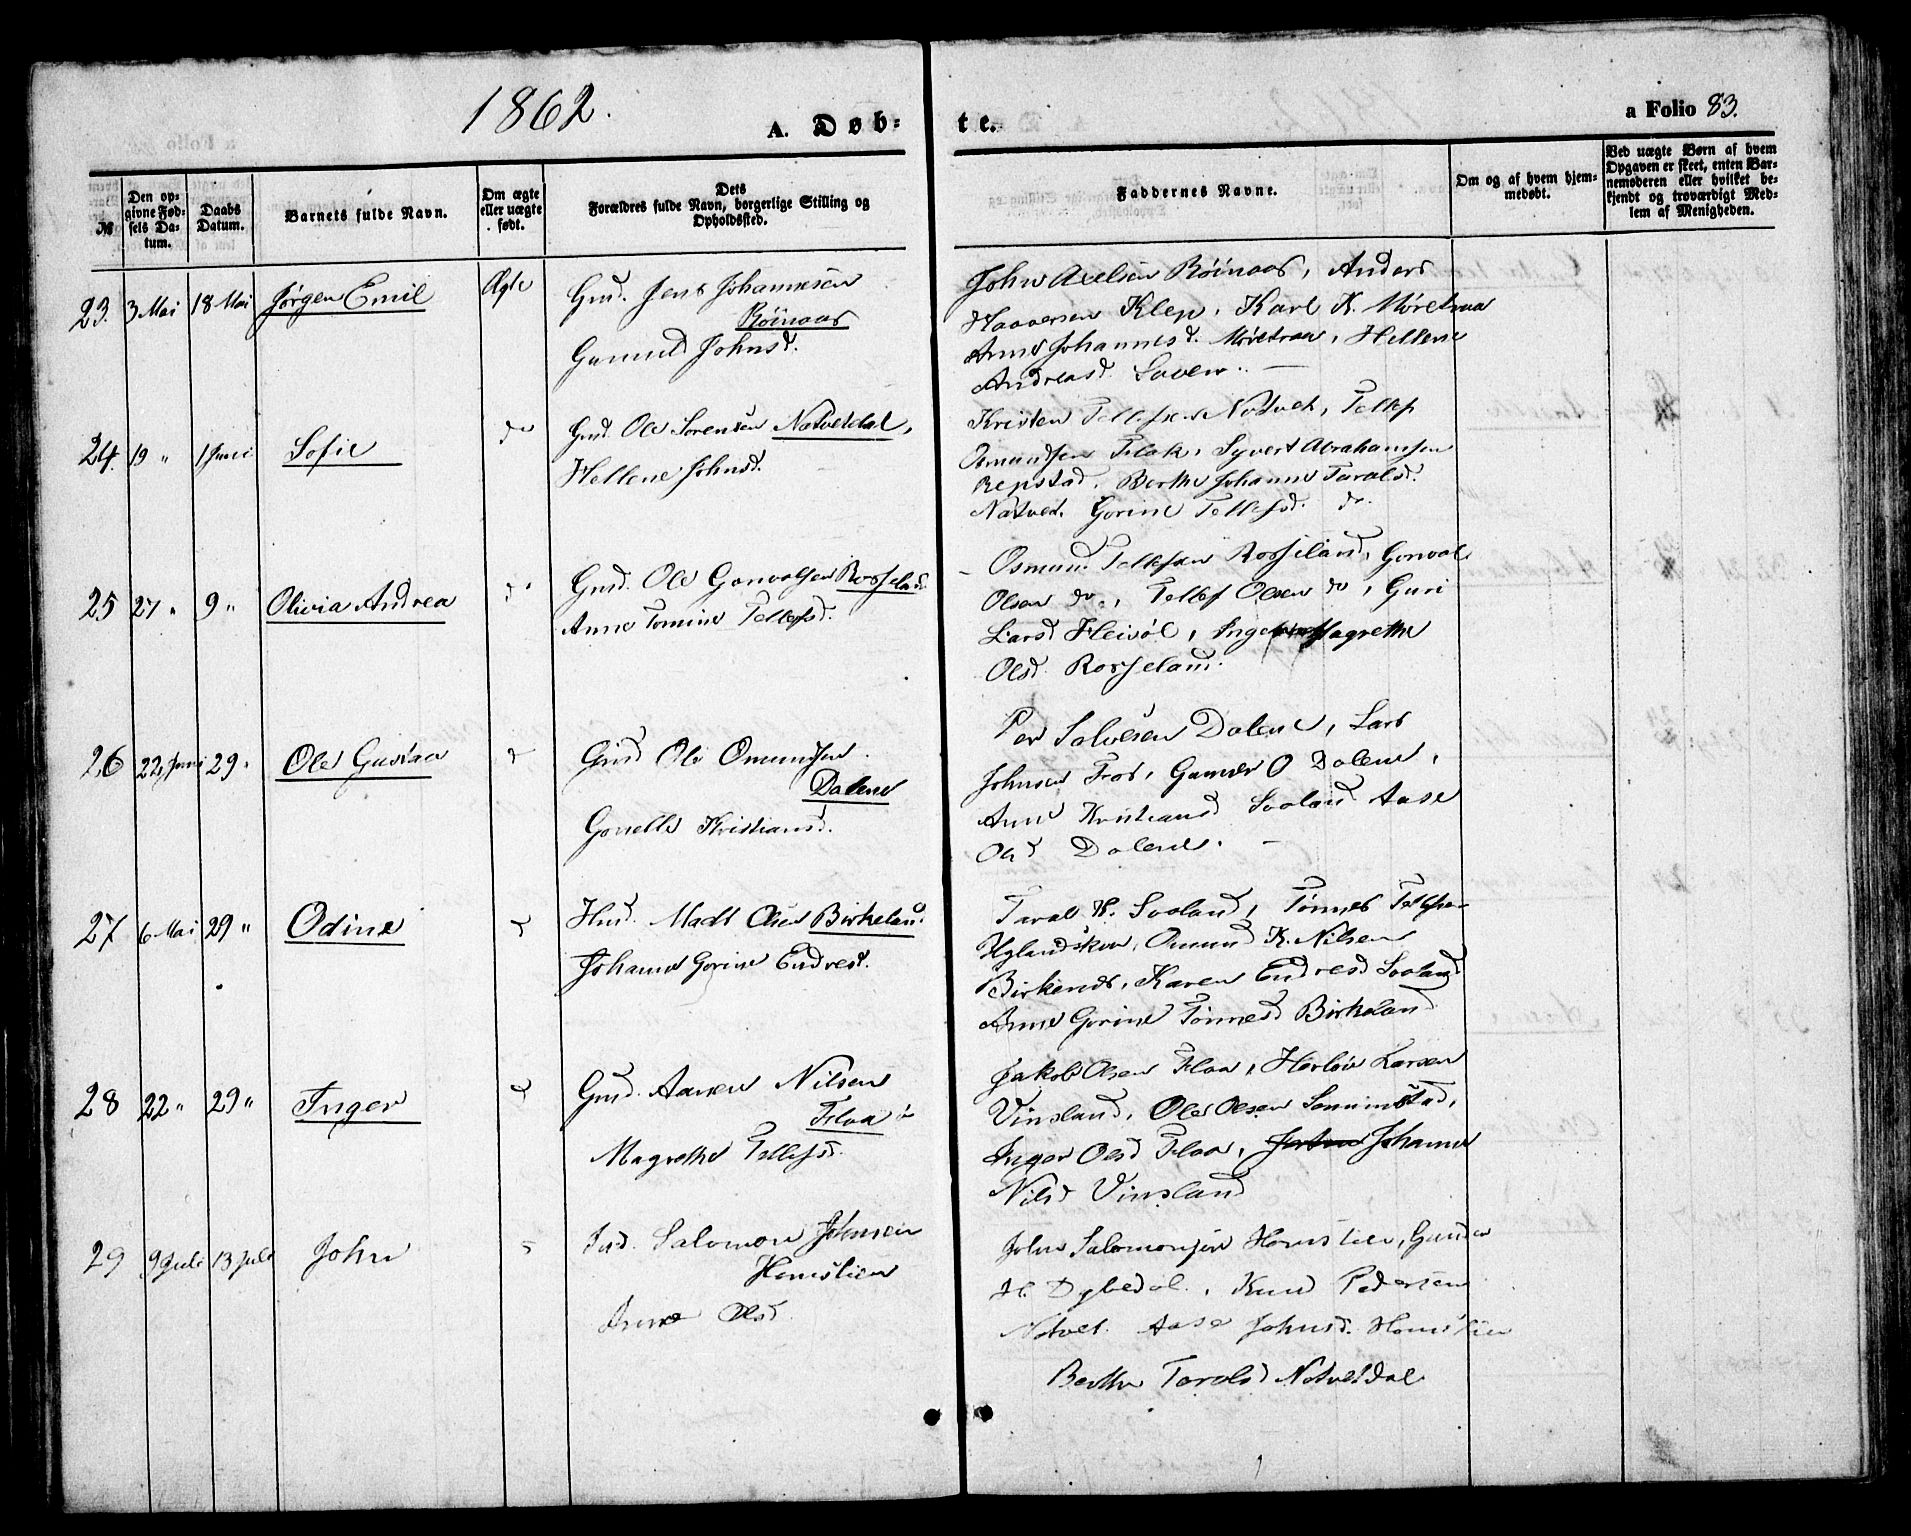 1862.
A. Døb-
te.
a Folio 83.
№
Den op-
givne Fød-
sels Da-
tum.
Daabs
Datum.
Barnets fulde Navn.
Om ægte
eller uægte
født.
Dets
Forældres fulde Navn, borgerlige Stilling og
Opholdssted.
Faddernes Navne.
Om og af hvem hjem-
medøbt.
Ved uægte Børn af hvem
Opgaven er skeet, enten Bar-
nemoderen eller hvilket be-
kjendt og troværdigt Med-
lem af Menigheden.
23. 3 Mai 18 Mai Jørgen Emil Ægte
Gmd. Jens Johannesen
Röinaas
Gunnild Johnsd.
John Axelsen Röinaas, Anders
Haaversen Klep, Karl K. Møretraa
Anne Johannesd. Møretraa, Hellene
Andreasd.
24. 19 " 1 Juni Sofie do
Gmd. Ole Sørensen Natveldal,
Hellene Johnsd.
Kristen Tellefsen Natvet, Tellef
Osmundsen Flak, Syvert Abrahamsen
Repstad, Berthe Johanne Taralsd.
Natvet. Gorine Tellefsd. do.
25 27 " 9 " Olivia Andrea do
Gmd. Ole Gonvalsen Rosseland.
Anne Tomine Tellefsd.
Osmund Tellefsen Rosseland, Gonval
Olsen do., Tellef Olsen do, Guri
Larsd Fleisöl, Inger Magrethe
Olsd. Rosseland.
26 22 Juni 29 " Ole Gustav d
Gmd Ole Omundsen
Dalene
Gonelle Kristiansd.
Per Salvesen Dalene, Lars
Johnsen Fros, Gunder O Dalene,
Anne Kristiansd Svaland Aase
Olsd Dalene.
27 6 Mai 29 " Odine d
Hmd. Mads Olsen Birkeland.
Johanne Gorine Endresd.
Taral H. Svaland, Tönnes Tellefsen
Hylandskov, Omund K. Nilsen
Birkenes, Karen Endresd Svaland
Anne Gorine Tönnesd Birkeland
28 22 " 29 " Inger d
Gmd. Aanen Nilsen
Flaa
Magrethe Tellefsd.
Jakob Olsen Flaa, Herlöv Larsen
Vinsland, Ole Olsen
Inger Olsd Flaa, Johanne
Nilsd Vinsland
29 9 Juli 13 Juli John
Ind. Salomon Johnsen
Homstien
Anne Olsd.
John Salomonsen Homstien, Gunder
H. Dybedal, Knud Pedersen
Natvet. Aase Johnsd. Homstien
Berthe Taralsd Natveldal